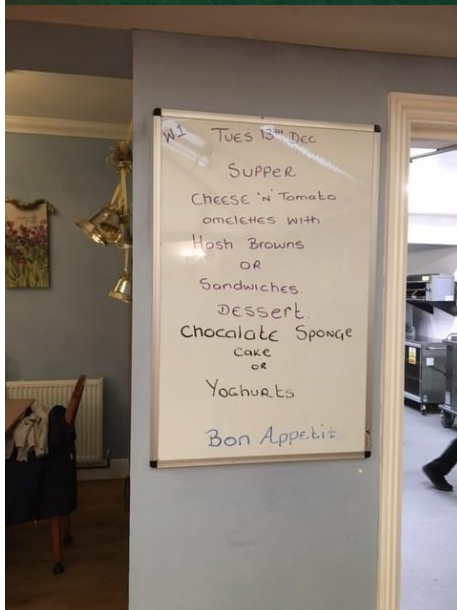 W1
TUES 13TH DEC
SUPPER
CHEESE 'N' TOMATO
OMELETTES WITH
HASH BROWNS
OR
SANDWICHES.
DESSERT.
CHOCALATE SPONGE
CAKE
OR
YOGHURTS
BON APPETIT